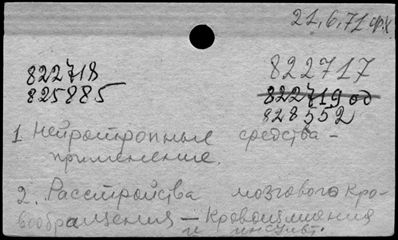 21,6,71
822717
822718
822719 од
825885
828552
1 Нейротропные средства -
применение.
2. Расстройства мозгового кро-
вообращения - Кровоизлияния
и инсульт.